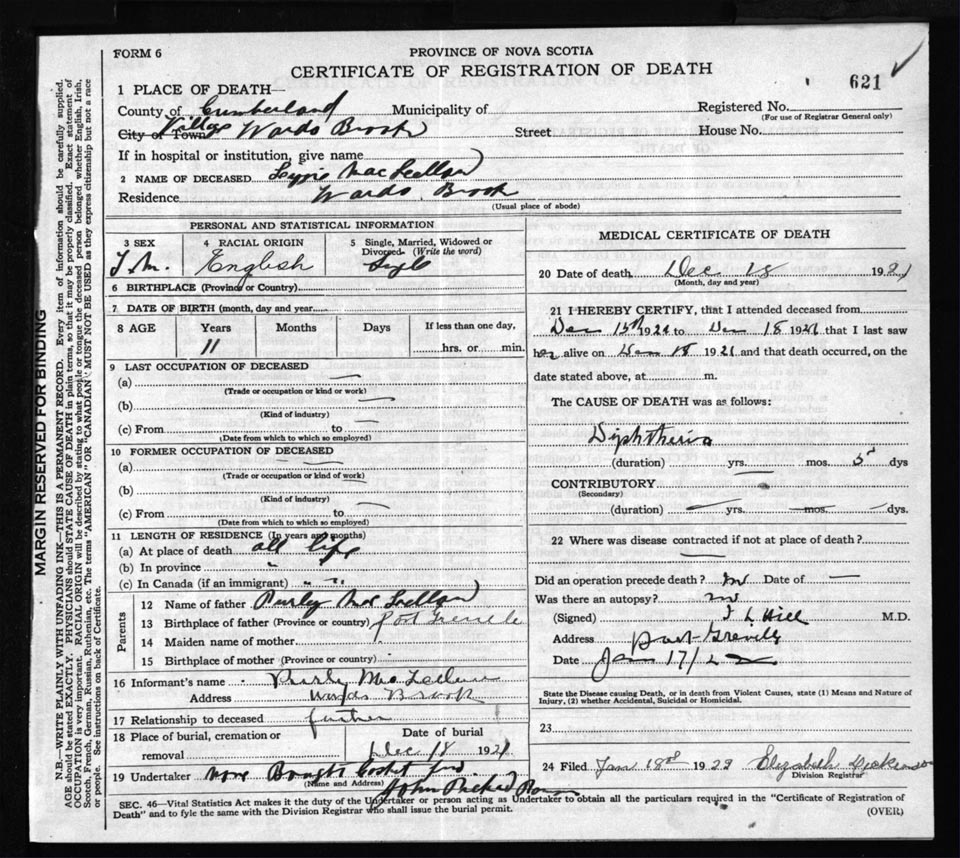 FORM 6
PROVINCE OF NOVA SCOTIA
CERTIFICATE OF REGISTRATION OF DEATH
621
1 PLACE OF DEATH—
County of Cumberland Municipality of Registered No.
(For use of Registrar General only)
City or Town Village Wards Brook Street House No.
If in hospital or institution, give name
2 NAME OF DECEASED MacLellan
Residence Wards Brook
(Usual place of abode)
PERSONAL AND STATISTICAL INFORMATION
3 SEX 4 RACIAL ORIGIN 5 Single, Married, Widowed or Divorced (Write the word)
English
6 BIRTHPLACE (Province or Country)
7 DATE OF BIRTH (month, day and year)
8 AGE Years Months Days If less than one day,
11 hrs. or min.
9 LAST OCCUPATION OF DECEASED
(a)
(Trade or occupation or kind of work)
(b)
(Kind of industry)
(c) From to
(Date from which to which so employed)
10 FORMER OCCUPATION OF DECEASED
(a)
(Trade or occupation or kind of work)
(b)
(Kind of industry)
(c) From to
(Date from which to which so employed)
11 LENGTH OF RESIDENCE (In years and months)
(a) At place of death all life
(b) In province "
(c) In Canada (if an immigrant) " "
Parents
12 Name of father Purly MacLellan
13 Birthplace of father (Province or country)
14 Maiden name of mother
15 Birthplace of mother (Province or country)
16 Informant's name Purly MacLellan
Address Wards Brook
17 Relationship to deceased father
18 Place of burial, cremation or removal Date of burial
Dec 18 1921
19 Undertaker none Bought Casket from
(Name and Address)
John
MEDICAL CERTIFICATE OF DEATH
20 Date of death Dec 18 1921
(Month, day and year)
21 I HEREBY CERTIFY, that I attended deceased from
Dec 15th 1921 to Dec 18 1921 that I last saw
her alive on Dec 18 1921 and that death occurred, on the
date stated above, at m.
The CAUSE OF DEATH was as follows:
Diphtheria
(duration) yrs. mos. 5 dys
CONTRIBUTORY
(Secondary)
(duration) yrs. mos. dys.
22 Where was disease contracted if not at place of death?
Did an operation precede death? no Date of
Was there an autopsy? no
(Signed) Hill M.D.
Address
Date Jan 17/22
State the Disease causing Death, or in death from Violent Causes, state (1) Means and Nature of
Injury, (2) whether Accidental, Suicidal or Homicidal.
23
24 Filed Jan 18 Elizabeth Dickinson
Division Registrar
SEC. 46—Vital Statistics Act makes it the duty of the Undertaker or person acting as Undertaker to obtain all the particulars required in the "Certificate of Registration of
Death" and to fyle the same with the Division Registrar who shall issue the burial permit.
(OVER)
MARGIN RESERVED FOR BINDING
N.B.—WRITE PLAINLY WITH UNFADING INK—THIS IS A PERMANENT RECORD. Every item of information should be carefully supplied.
AGE should be stated EXACTLY. PHYSICIANS should STATE CAUSE OF DEATH in plain terms, so that it may be properly classified. Exact statement of
OCCUPATION is very important. RACIAL ORIGIN will be described by stating to what people or tongue the deceased person belonged whether English, Irish,
Scotch, French, German, Russian, Ruthenian, etc. The terms "AMERICAN" OR "CANADIAN" MUST NOT BE USED as they express citizenship but not a race
or people. See instructions on back of Certificate.